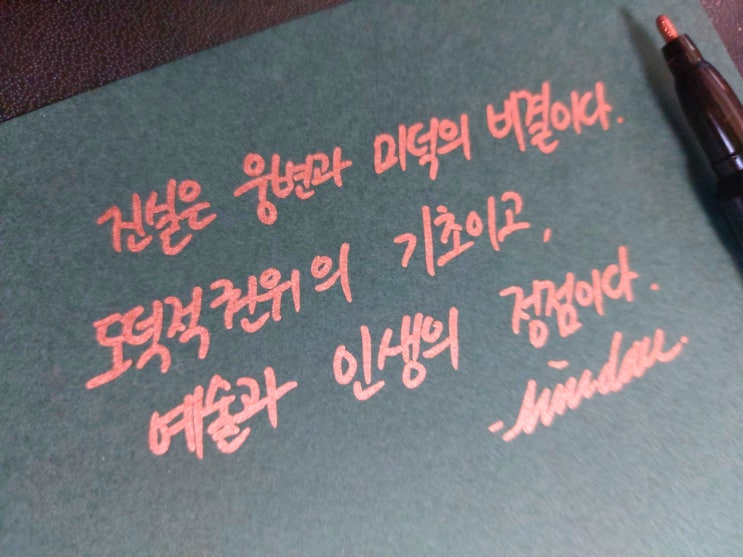 진실은 웅변과 미덕의 비결이다.
도덕적 권위의 기초이고,
예술과 인생의 정점이다.